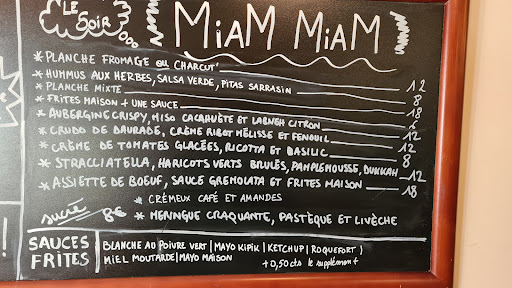 LE SOIR
MiAM MiAM
* PLANCHE FROMAGE ou CHARCUT' 12
* HUMMUS AUX HERBES, SALSA VERDE, PITAS SARRASIN 8
* PLANCHE MIXTE 18
* FRITES MAISON + UNE SAUCE
* AUBERGINE CRISPY, MISO CACAHUÈTE ET LABNEH CITRON 12
* CRUDO DE DAURADE, CRÈME RIBOT MÉLISSE ET FENOUIL 12
* CRÈME DE TOMATES GLACÉES, RICOTTA ET BASILIC 8
* STRACCIATELLA, HARICOTS VERTS BRULÉS, PAMPLEMOUSSE, DUKKAH 12
* ASSIETTE DE BOEUF, SAUCE GREMOLATA ET FRITES MAISON 18
sucré 8€
* CRÉMEUX CAFÉ ET AMANDES
* MERINGUE CRAQUANTE, PASTÈQUE ET LIVÈCHE
SAUCES FRITES
BLANCHE AU POIVRE VERT | MAYO KIPIK | KETCHUP | ROQUEFORT |
MIEL MOUTARDE | MAYO MAISON
+0,50 cts le supplément